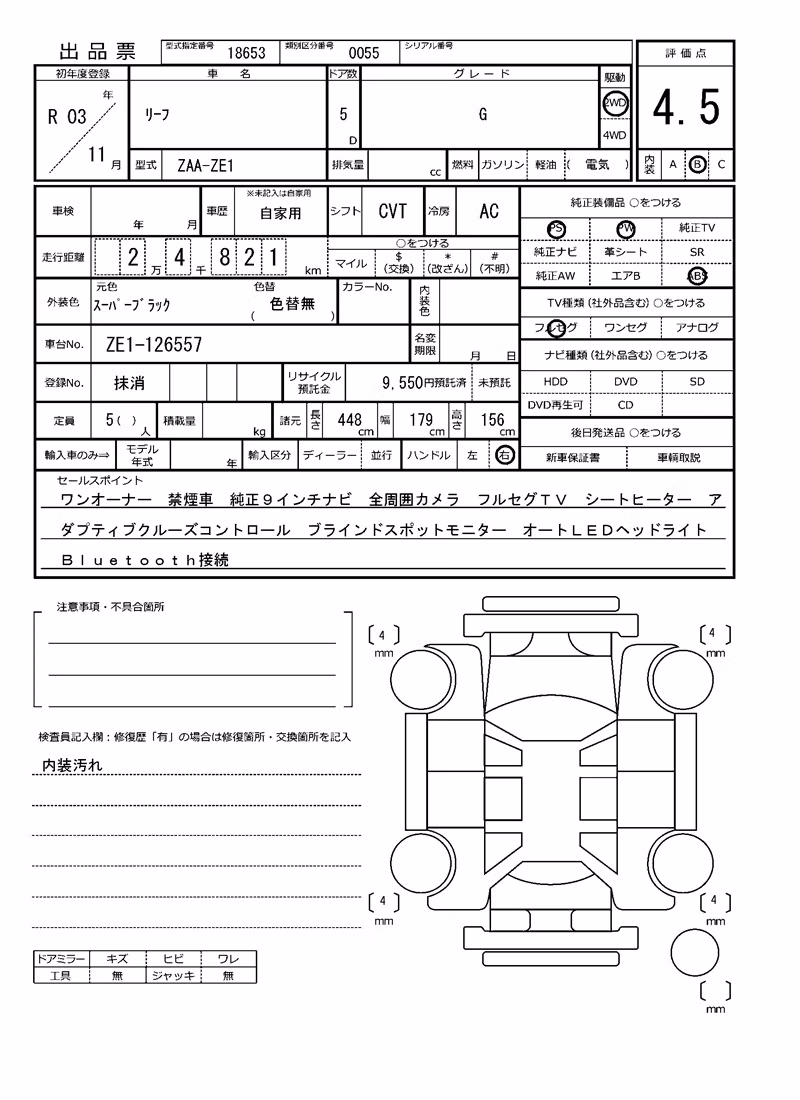 出品票 型式指定番号 18653 類別区分番号 0055 シリアル番号
評価点
4.5
内装 A B C
初年度登録 車名 ドア数 グレード 駆動
R 03 年 11 月 リーフ 5 D G 2WD
4WD
型式 ZAA-ZE1 排気量 cc 燃料 ガソリン 軽油 ( 電気 )
車検 年 月 車歴 ※未記入は自家用 自家用 シフト CVT 冷房 AC
走行距離 2 万 4 千 8 2 1 km
○をつける
マイル $ (交換) * (改ざん) # (不明)
外装色 元色 スーパーブラック 色替 ( 色替無 ) カラーNo. 内装色
車台No. ZE1-126557 名変期限 月 日
登録No. 抹消 リサイクル預託金 9,550円預託済 未預託
定員 5 ( ) 人 積載量 kg 諸元 長さ 448 cm 幅 179 cm 高さ 156 cm
輸入車のみ⇒ モデル年式 年 輸入区分 ディーラー 並行 ハンドル 左 右
純正装備品 ○をつける
PS PW 純正TV
純正ナビ 革シート SR
純正AW エアB ABS
TV種類(社外品含む)○をつける
フルセグ ワンセグ アナログ
ナビ種類(社外品含む)○をつける
HDD DVD SD
DVD再生可 CD
後日発送品 ○をつける
新車保証書 車輌取説
セールスポイント
ワンオーナー 禁煙車 純正9インチナビ 全周囲カメラ フルセグTV シートヒーター ア
ダプティブクルーズコントロール ブラインドスポットモニター オートLEDヘッドライト
Bluetooth接続
注意事項・不具合箇所
検査員記入欄:修復歴「有」の場合は修復箇所・交換箇所を記入
内装汚れ
ドアミラー キズ ヒビ ワレ
工具 無 ジャッキ 無
[4] mm
[4] mm
[4] mm
[4] mm
[ ] mm